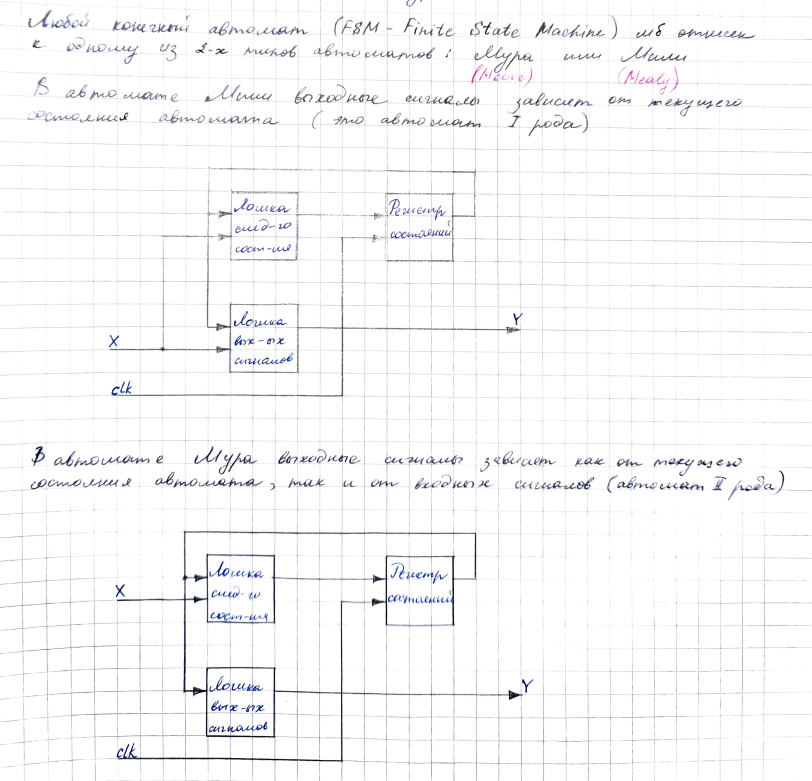 Любой конечный автомат (FSM - Finite State Machine) мб отнесен
к одному из 2-х типов автоматов: Мура или Мили
(Moore) (Mealy)
В автомате Мили выходные сигналы зависят от текущего
состояния автомата (это автомат I рода)
Логика
след-го
сост-ия
Регистр
состояний
Логика
вых-ых
сигналов
Y
X
clk
В автомате Мура выходные сигналы зависят как от текущего
состояния автомата, так и от входных сигналов (автомат II рода)
Логика
след-го
сост-ия
Регистр
состояний
X
Логика
вых-ых
сигналов
Y
clk